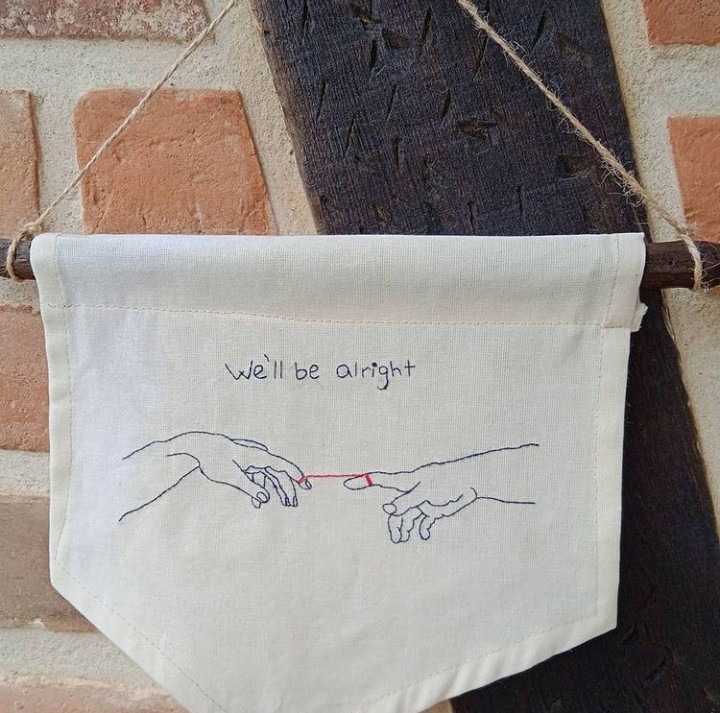 We'll be alright